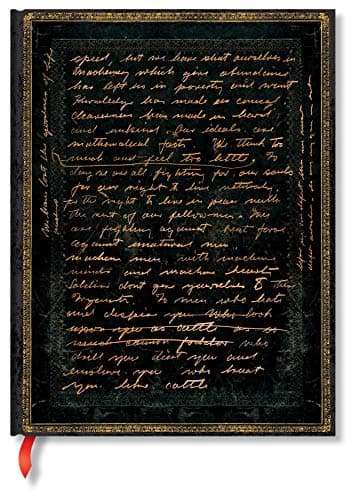 speed, but we have shut ourselves in
machinery which gives abundance
has left us in poverty and want
Knowledge has made us cynical
Cleverness has made us hard
and unkind. Our ideals are
mathematical facts. We think too
much and feel too little. To
day we are all fighting for our souls
for our right to live
the right to live in peace with
the rest of our fellow men. We
are fighting against
against unnatural men
machine men with machine
minds and machine hearts
Soldiers dont give yourselves to the
To men who hate
and despise you who look
upon you as cattle or as
cannon fodder who
drill you diet you and
enslave you who treat
you like cattle
We have lost the of life